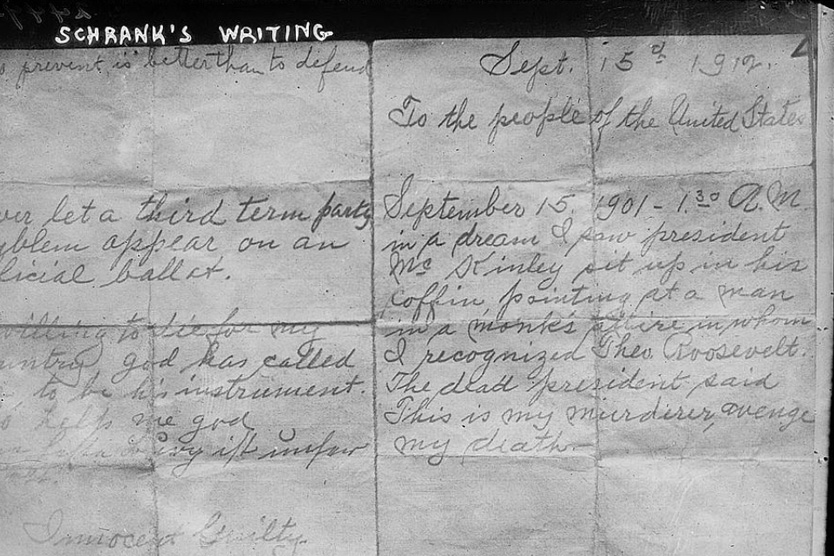 SCHRANK'S WRITING
prevent is better than to defend
ver let a third term party
mblem appear on an
ficial ballot.
willing to die for my
untry, god has called
to be his instrument.
o help me god
burg ist unser
Innocent Guilty.
Sept. 15 d 1912.
To the people of the United States
September 15, 1901 - 1.30 A.M.
in a dream I saw president
Mc Kinley sit up in his
coffin pointing at a man
in a monk's attire in whom
I recognized Theo. Roosevelt.
The dead president said
This is my murderer, avenge
my death.